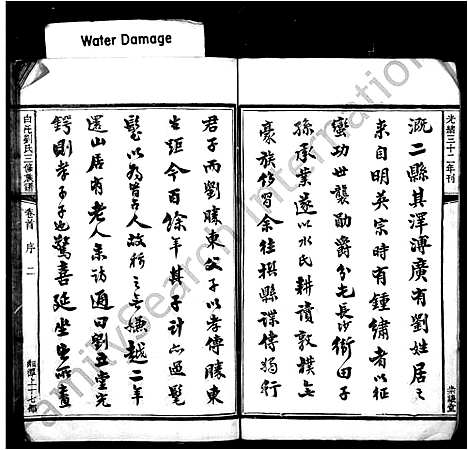 Water Damage
光緒三十二年刊
溉二縣其澤溥廣有劉姓居之
来自明英宗時有鍾繡者以征
蠻功世襲勛爵分屯長沙衛田子
孫承業遂以水氏耕讀敦樸無
豪族習余往撰縣諜傳獨行
君子而劉勝東父子以孝傳勝東
生距今百餘年其子計亦過髦
髦以為昔古人故称之無嫌越二年
還山居有老人来訪通曰劉五堂先
鍔則孝子子也驚喜延坐出所畫
白沱劉氏三修族譜
卷首
序
二
湘潭上十七都
amilySearch International